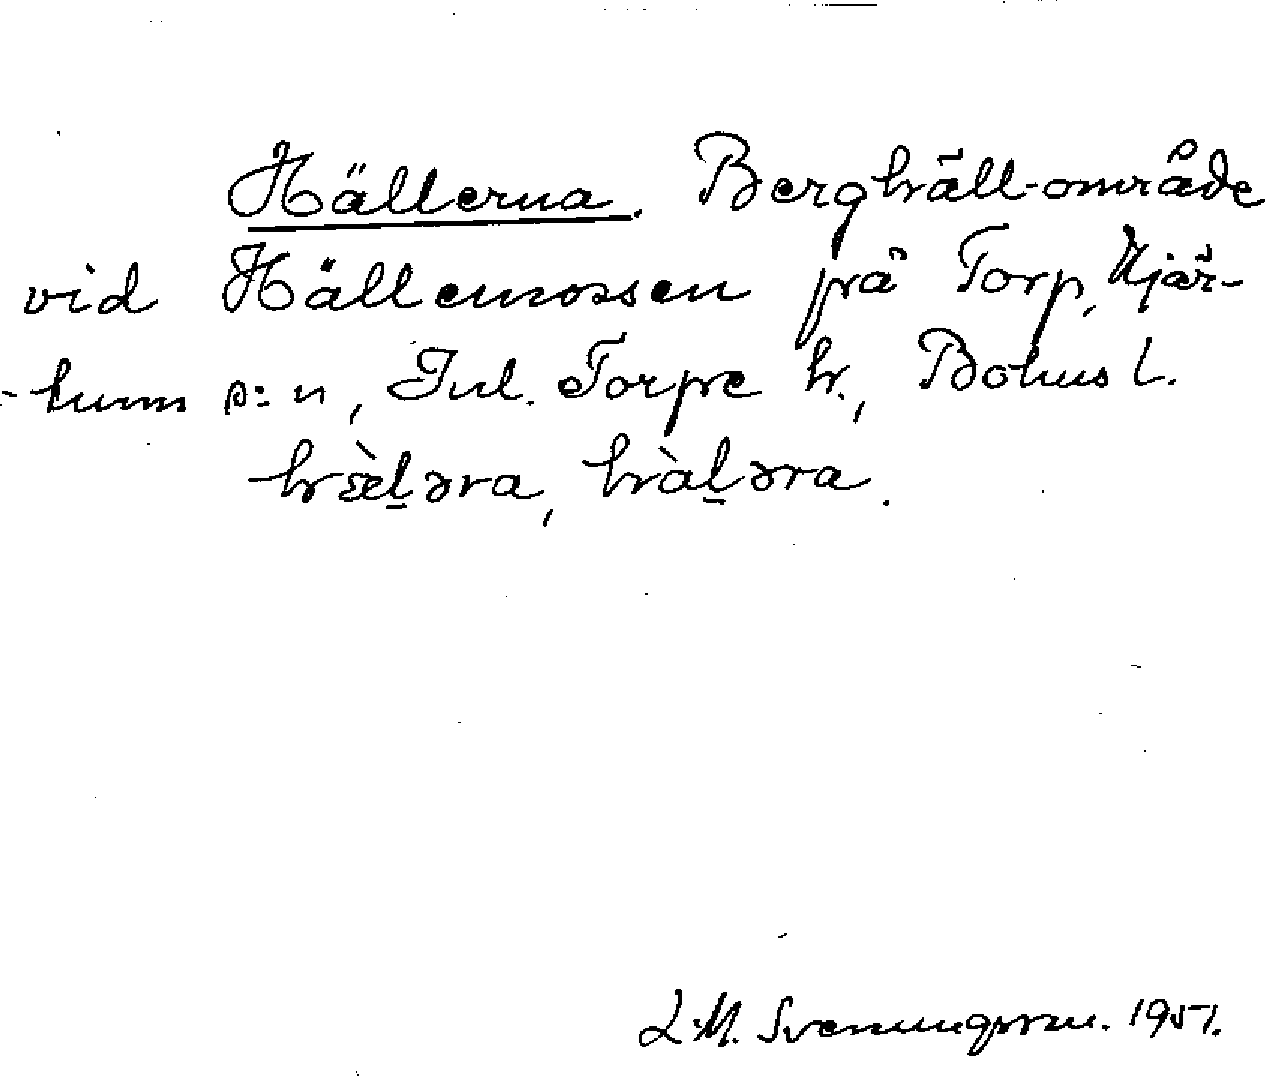 Hällerna. Berghäll-område
vid Hällemossen på Torp, Hjär-
-tum s:n, Inl. Torpe hr., Bohusl.
hæ̀l̠əra, hàl̠əra.
L.M. Svenungsson. 1951.